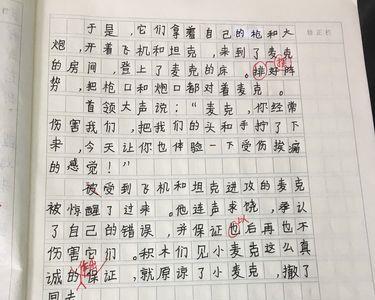 于是，它们拿着自己的枪和大
炮，开着飞机和坦克，来到了麦克
的房间，登上了麦克的床。排好阵
势，把枪口和炮口都对着麦克。
首领大声说：“麦克，你经常
伤害我们，把我们的头和手拧了下
来，今天让你也体验一下受伤挨痛
的感觉！”
被受到飞机和坦克进攻的麦克
被惊醒了过来。他连声求饶，承认
了自己的错误，并保证也后再也不
伤害它们。积木们见小麦克这么真
诚的保证，就原谅了小麦克，撤了
回去